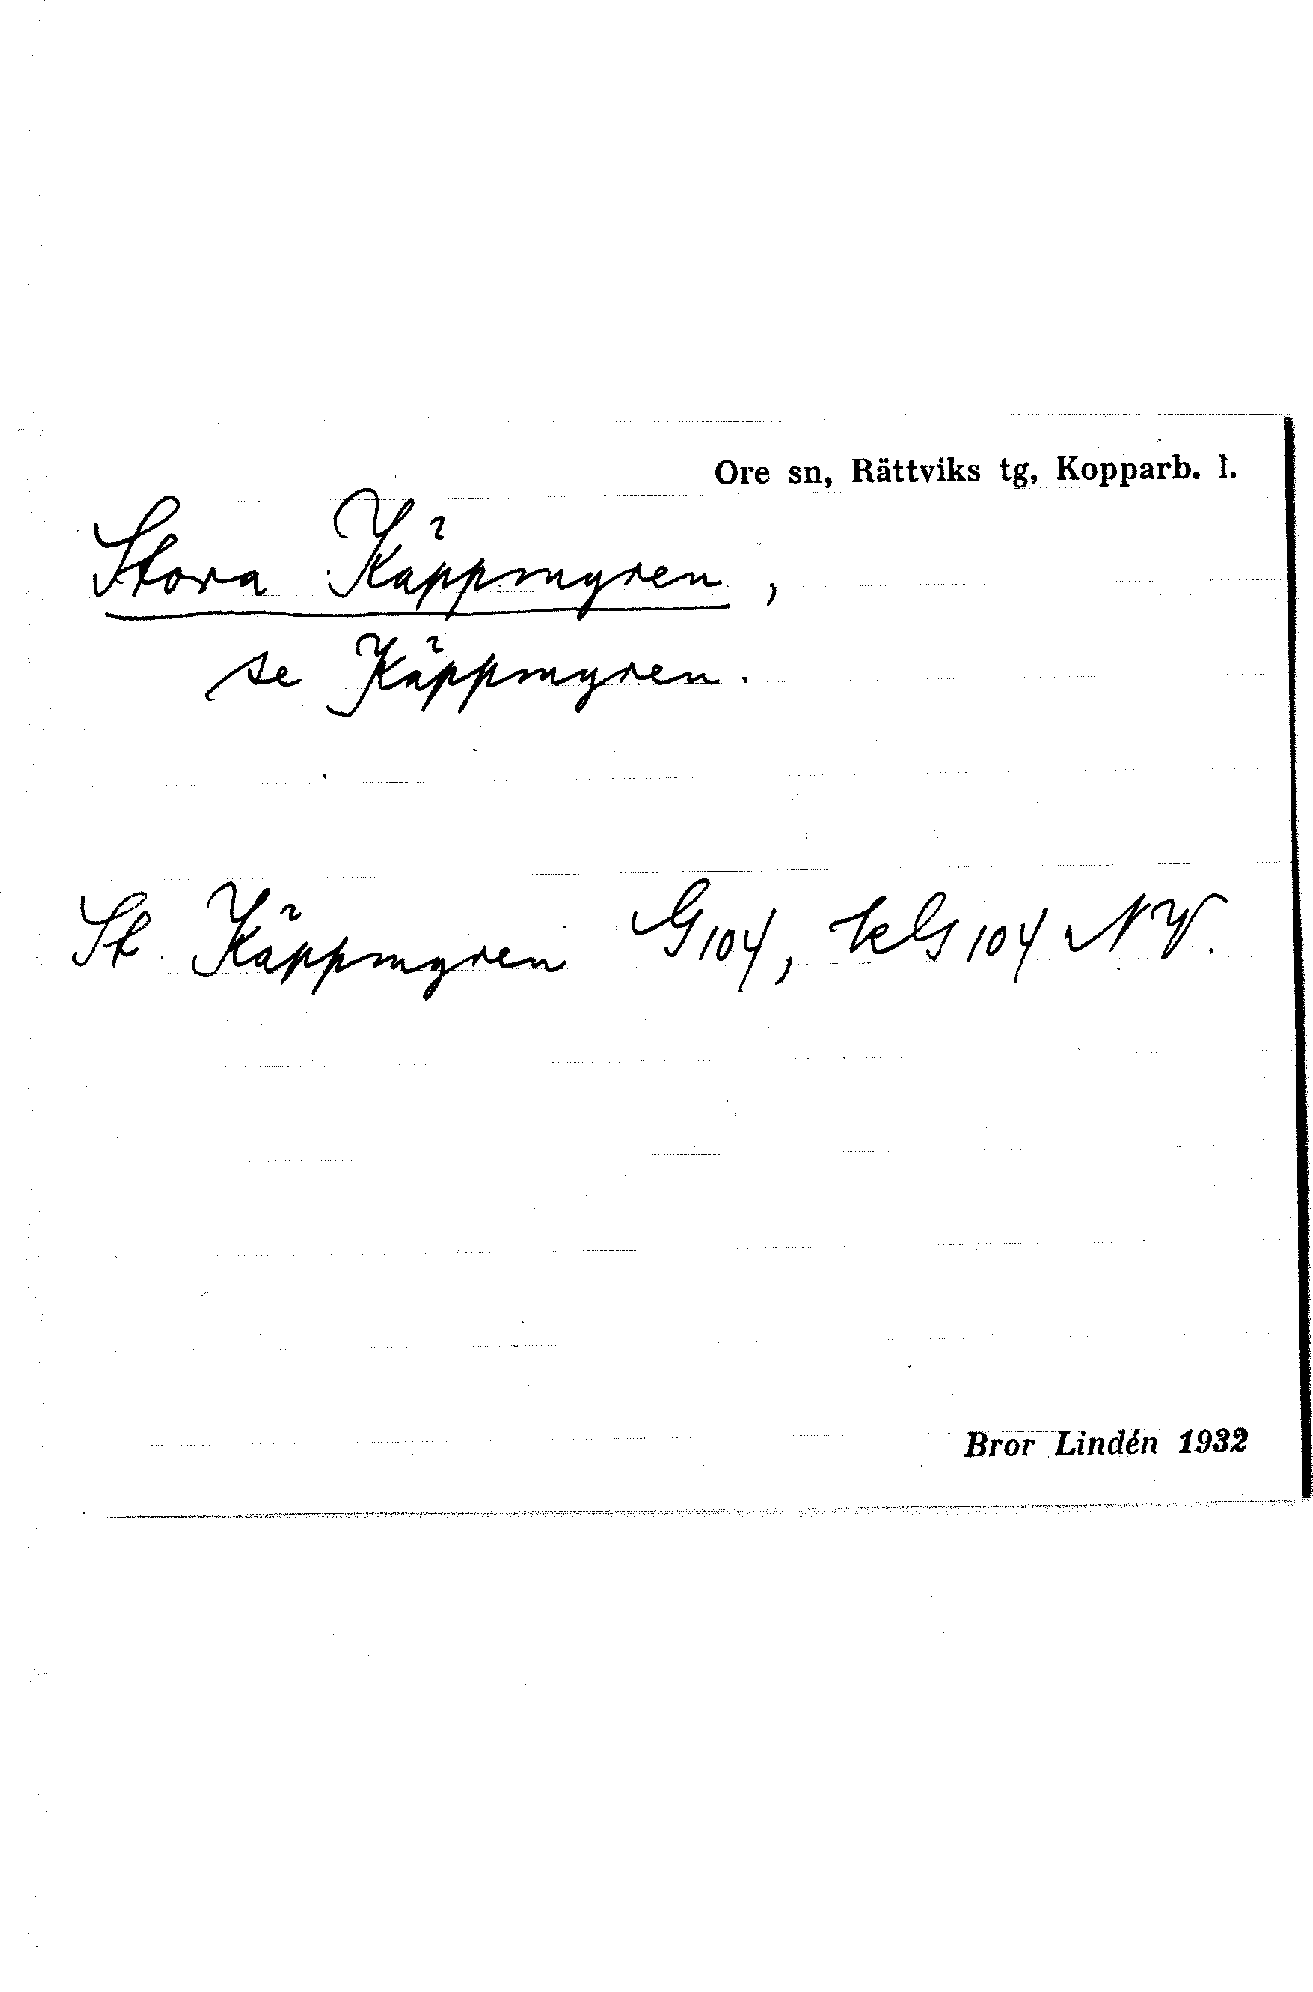 Ore sn, Rättviks tg, Kopparb. l.
Stora Käppmyren,
se Käppmyren.
St. Käppmyren G104, kG104 NV.
Bror Lindén 1932